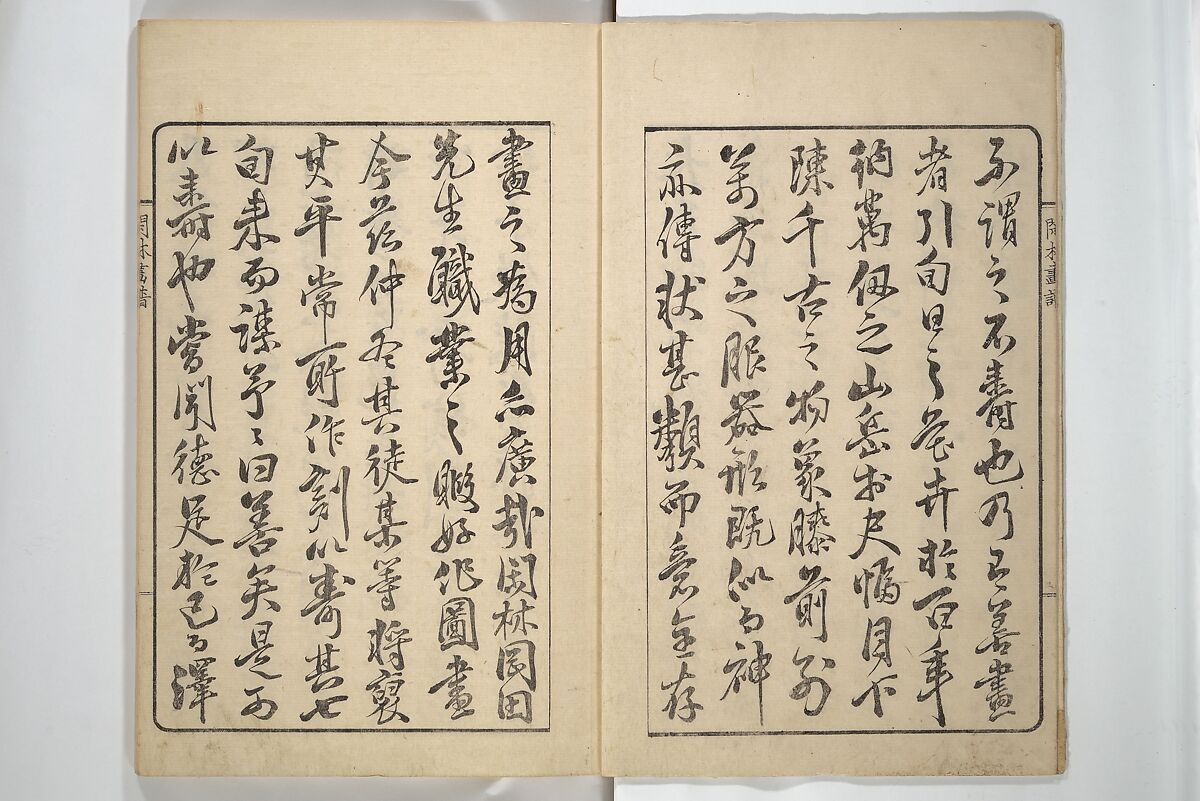 不謂之不壽也乃至善畫
者引旬日之花卉於百年
縮萬仭之山岳於尺幅目下
陳千古之物象膝前列
萬方之服器形既似而神
亦傳狀甚類而意全存
閑林畫譜
畫之為用亦廣哉閑林岡田
先生職業之暇好作圖畫
今茲仲冬其徒某等將裒
其平常所作刻以壽其七
旬来而謀予〻曰善矣是可
以壽也嘗聞德足於己而澤
閑林畫譜